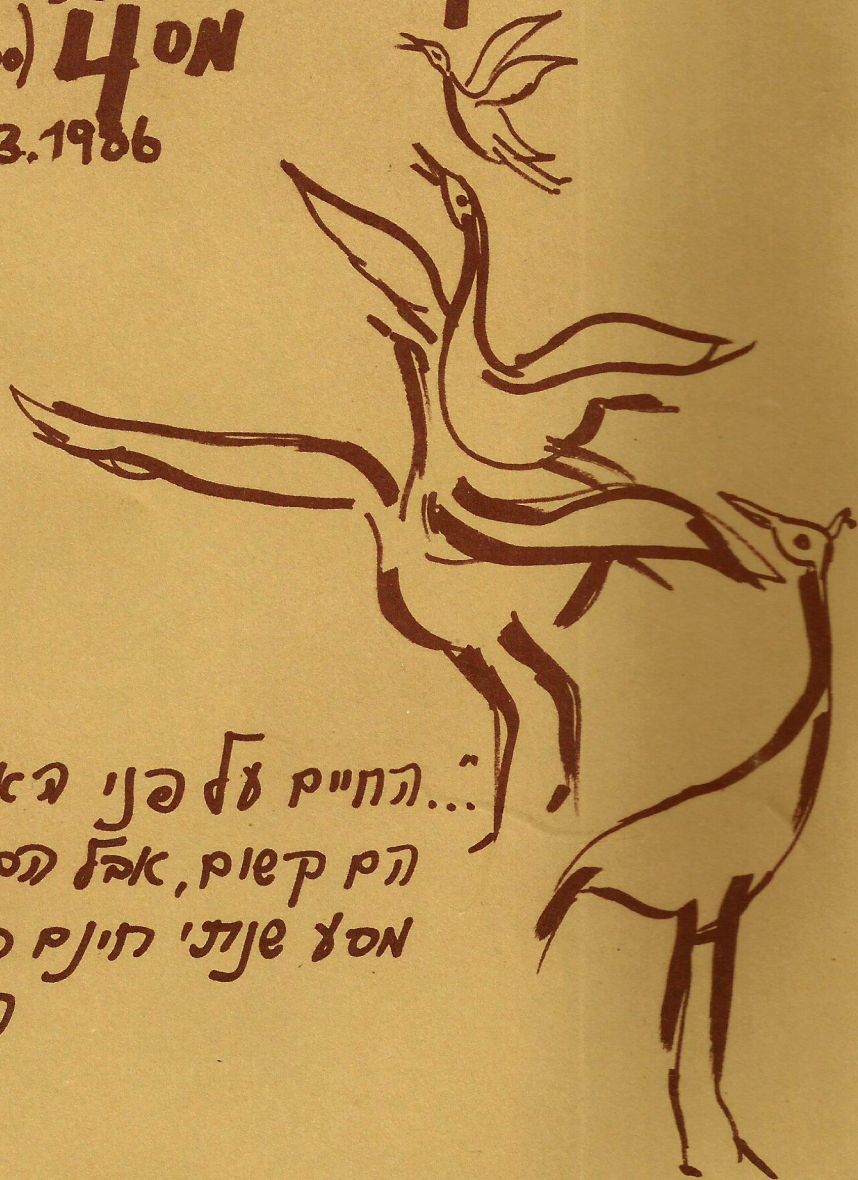 מס 4
3.1986
"...החיים על פני הא
הם קשים, אבל הם
מסע שנתי חינם